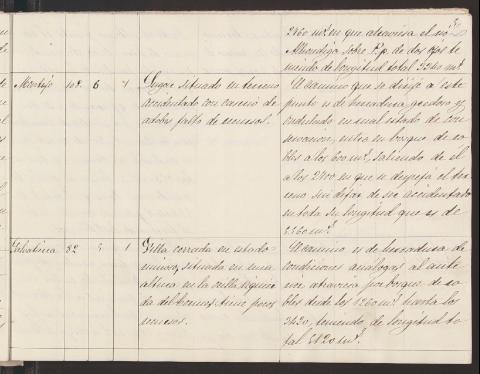 2460 m.s en que atraviesa el rio
Almondiga sobre P.p. de dos ojos te
niendo de longitud total 2240 m.s
Montijo 102 6 7 Lugar situado en terreno
accidentado con caserio de
adobes falto de recursos.
El camino que se dirige á este
punto es de herradura, penoso y
ondulado en igual estado de con
servacion, entra en bosque de ro
bles á los 600 m.s, saliendo de él
á los 2100 en que se despeja el ter
reno sin dejar de ser accidentado
en toda su longitud que es de
2360 m.s
Salvatierra 82 1 Villa cerrada en estado
ruinoso, situada en una
altura en la orilla izquier
da del Tormes, tiene pocos
recursos.
El camino es de herradura de
condiciones análogas al ante
rior atraviesa por bosque de ro
bles desde los 1260 m.s hasta los
3420, teniendo de longitud to
tal 5120 m.s